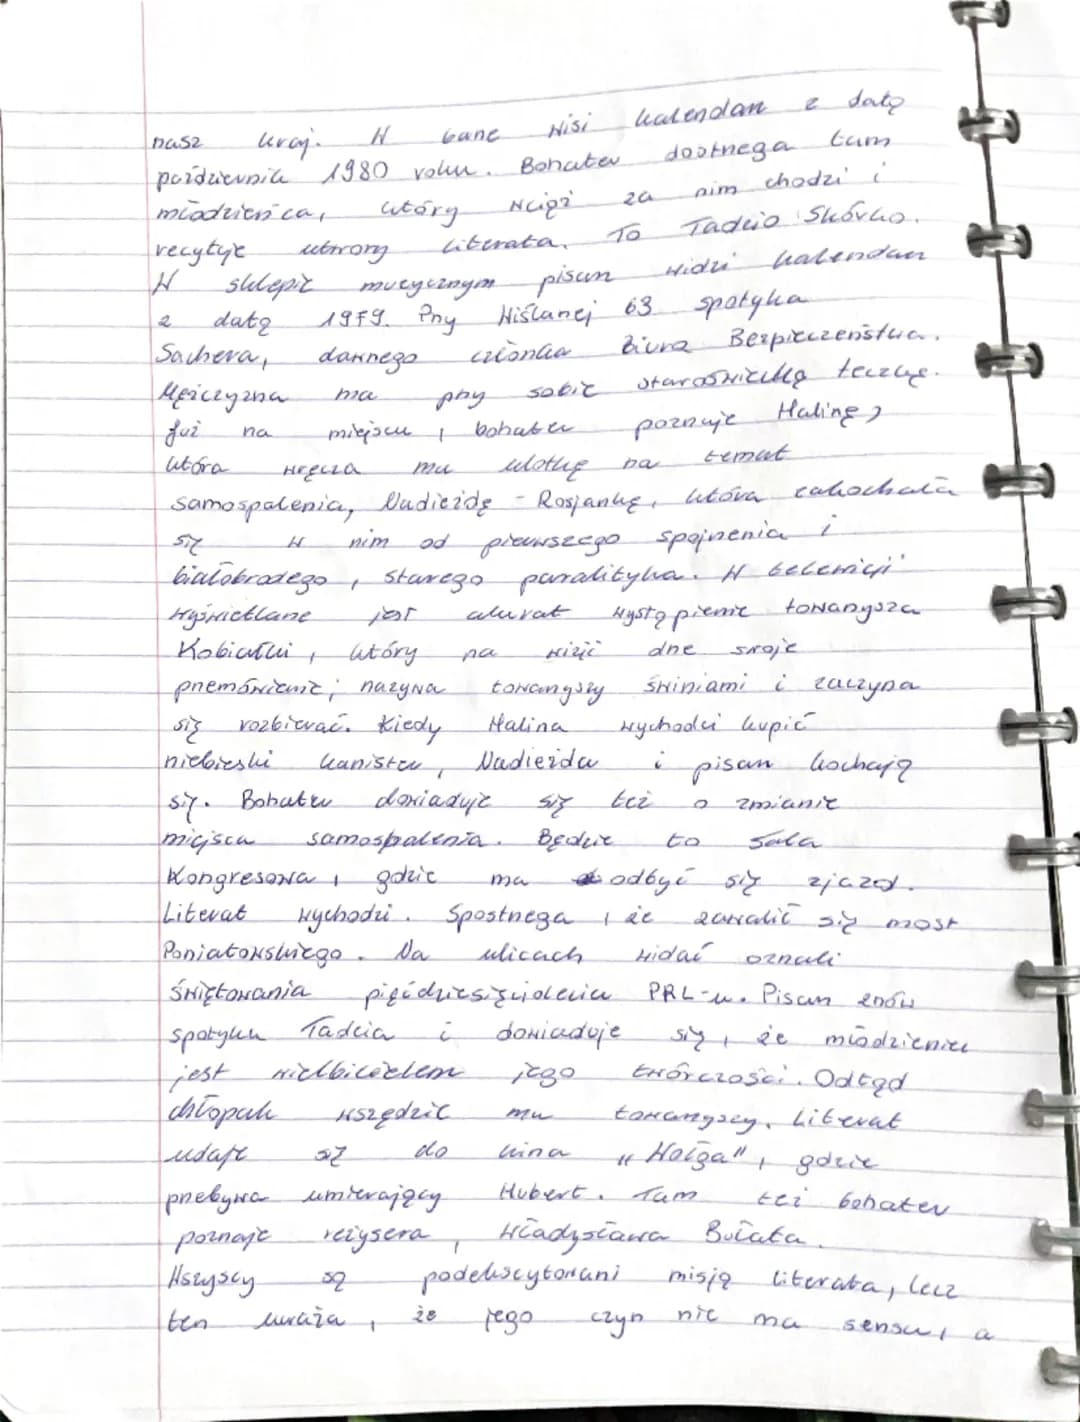 nasz kraj. W barze wisi kalendarz z datą
października 1980 roku. Bohater dostrzega tam
młodzieńca, który wciąż za nim chodzi i
recytuje utwory literata. To Tadzio Skórko.
W sklepie muzycznym pisarz widzi kalendarz
z datą 1979. Przy Wiślanej 63 spotyka
Sachera, dawnego członka Biura Bezpieczeństwa.
Mężczyzna ma przy sobie staroświecką teczkę.
Już na miejscu, bohater poznaje Halinę,
która wręcza mu ulotkę na temat
samospalenia, Nadieżdę - Rosjankę, która zakochała
się w nim od pierwszego spojrzenia i
białobrodego, starego paralityka. W telewizji
wyświetlane jest akurat wystąpienie towarzysza
Kobiałki, który na wizji drze swoje
przemówienie; nazywa towarzyszy świniami i zaczyna
się rozbierać. Kiedy Halina wychodzi kupić
niebieski kanister, Nadieżda i pisarz kochają
się. Bohater dowiaduje się też o zmianie
miejsca samospalenia. Będzie to Sala
Kongresowa, gdzie ma odbyć się zjazd.
Literat wychodzi. Spostrzega, że zawalił się most
Poniatowskiego. Na ulicach widać oznaki
świętowania pięćdziesięciolecia PRL-u. Pisarz znów
spotyka Tadzia i dowiaduje się, że młodzieniec
jest wielbicielem jego twórczości. Odtąd
chłopak wszędzie mu towarzyszy. Literat
udaje się do kina „Wołga", gdzie
przebywa umierający Hubert. Tam też bohater
poznaje reżysera, Władysława Bułata.
Wszyscy są podekscytowani misją literata, lecz
ten uważa, że jego czyn nie ma sensu, a